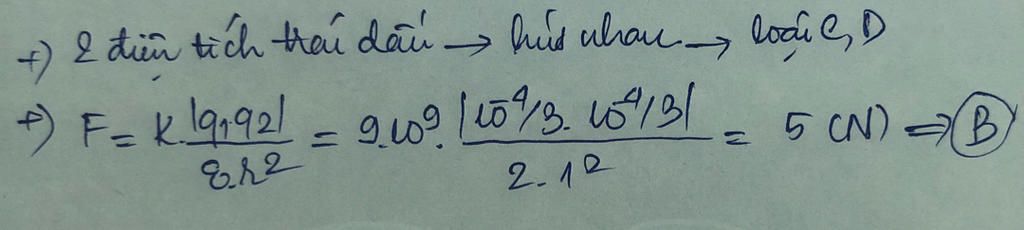 +) 2 điện tích trái dấu → hút nhau → loại C, D
+) F = k.|q1q2|/ε.r² = 9.10⁹.|10⁻⁴/3.10⁻⁴/3|/2.1² = 5 (N) ⇒ B